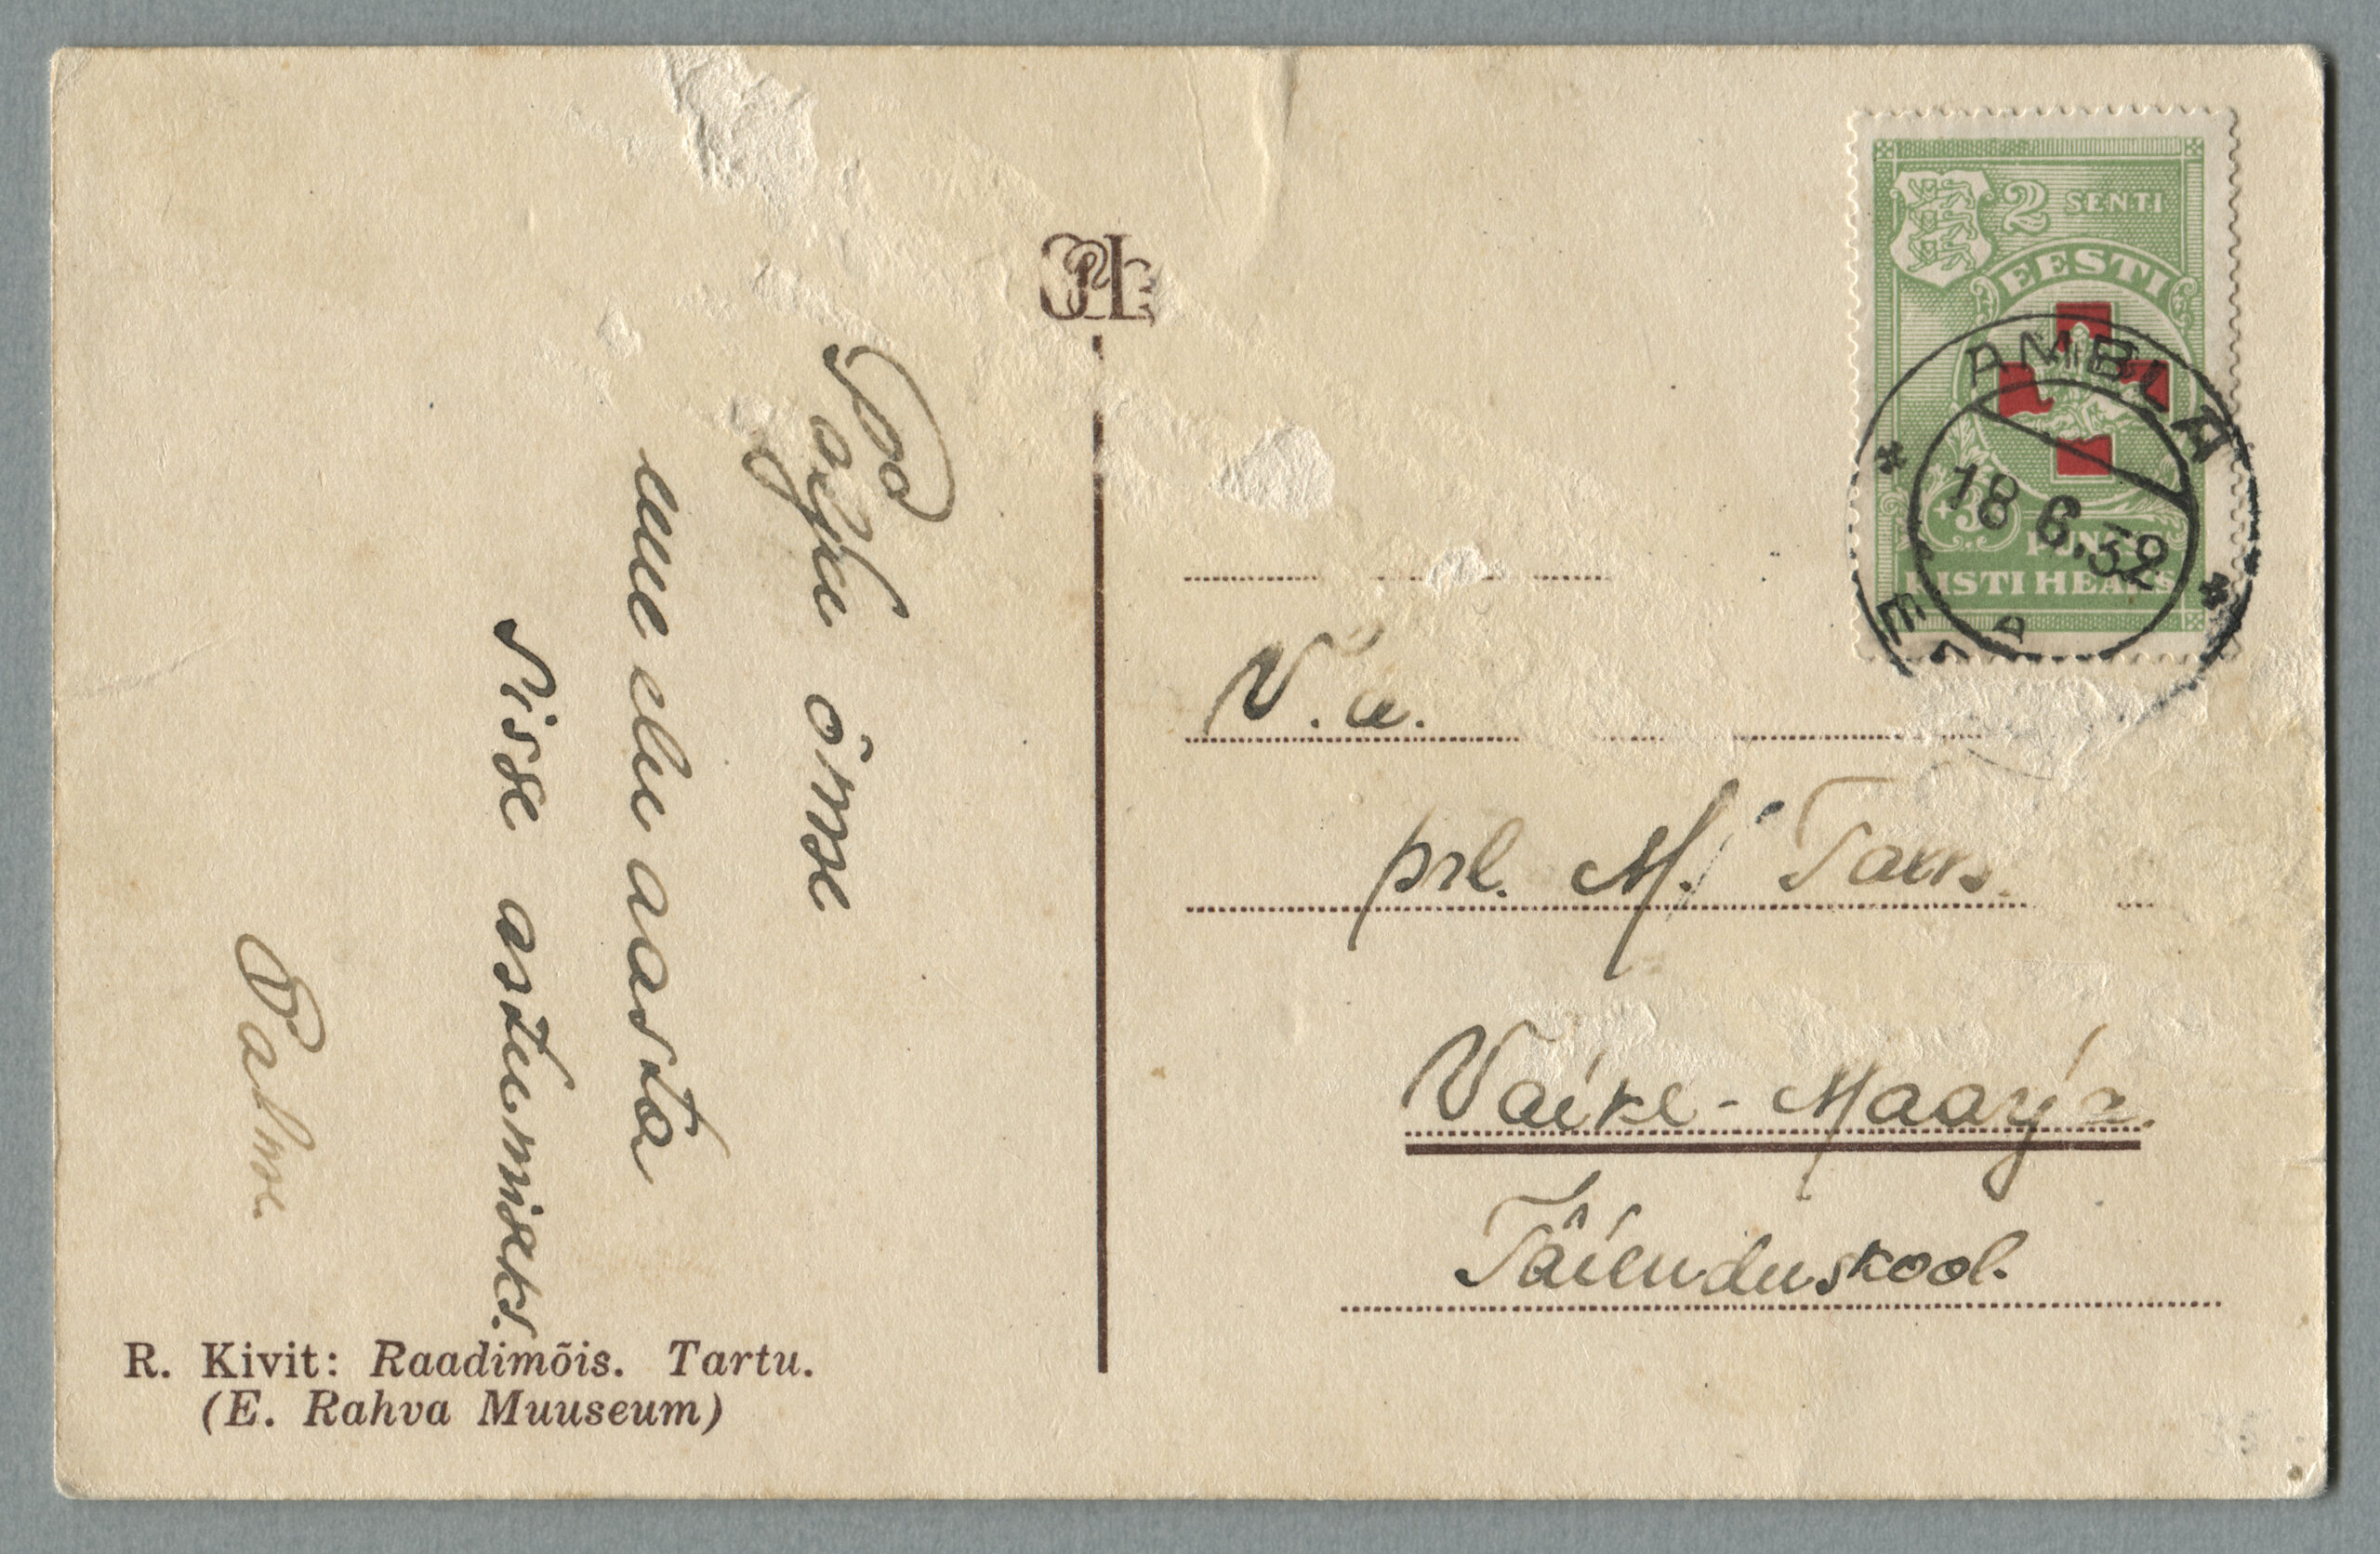 Soo
palju õnne
uue elu aasta
sisse astumiseks.
Palme.
R. Kivit: Raadimõis. Tartu.
(E. Rahva Muuseum)
2 SENTI
EESTI
+3
PUNASE
RISTI HEAKS
AMBLA
18 6.32
EESTI
V. a.
prl. M.
Väike-Maarja.
Täienduskool.